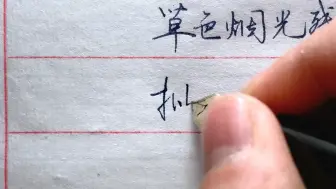 草色烟光残
拟